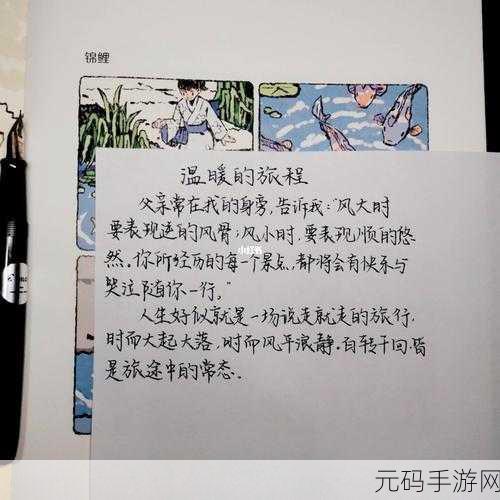 锦鲤
温暖的旅程
父亲常在我的身旁,告诉我:"风大时
要表现逆的风骨;风小时,要表现顺的悠
然。你所经历的每一个景点,都将会有快乐与
哭泣随你一行。"
人生好似就是一场说走就走的旅行,
时而大起大落,时而风平浪静。百转千回,皆
是旅途中的常态。
小红书
元码手游网